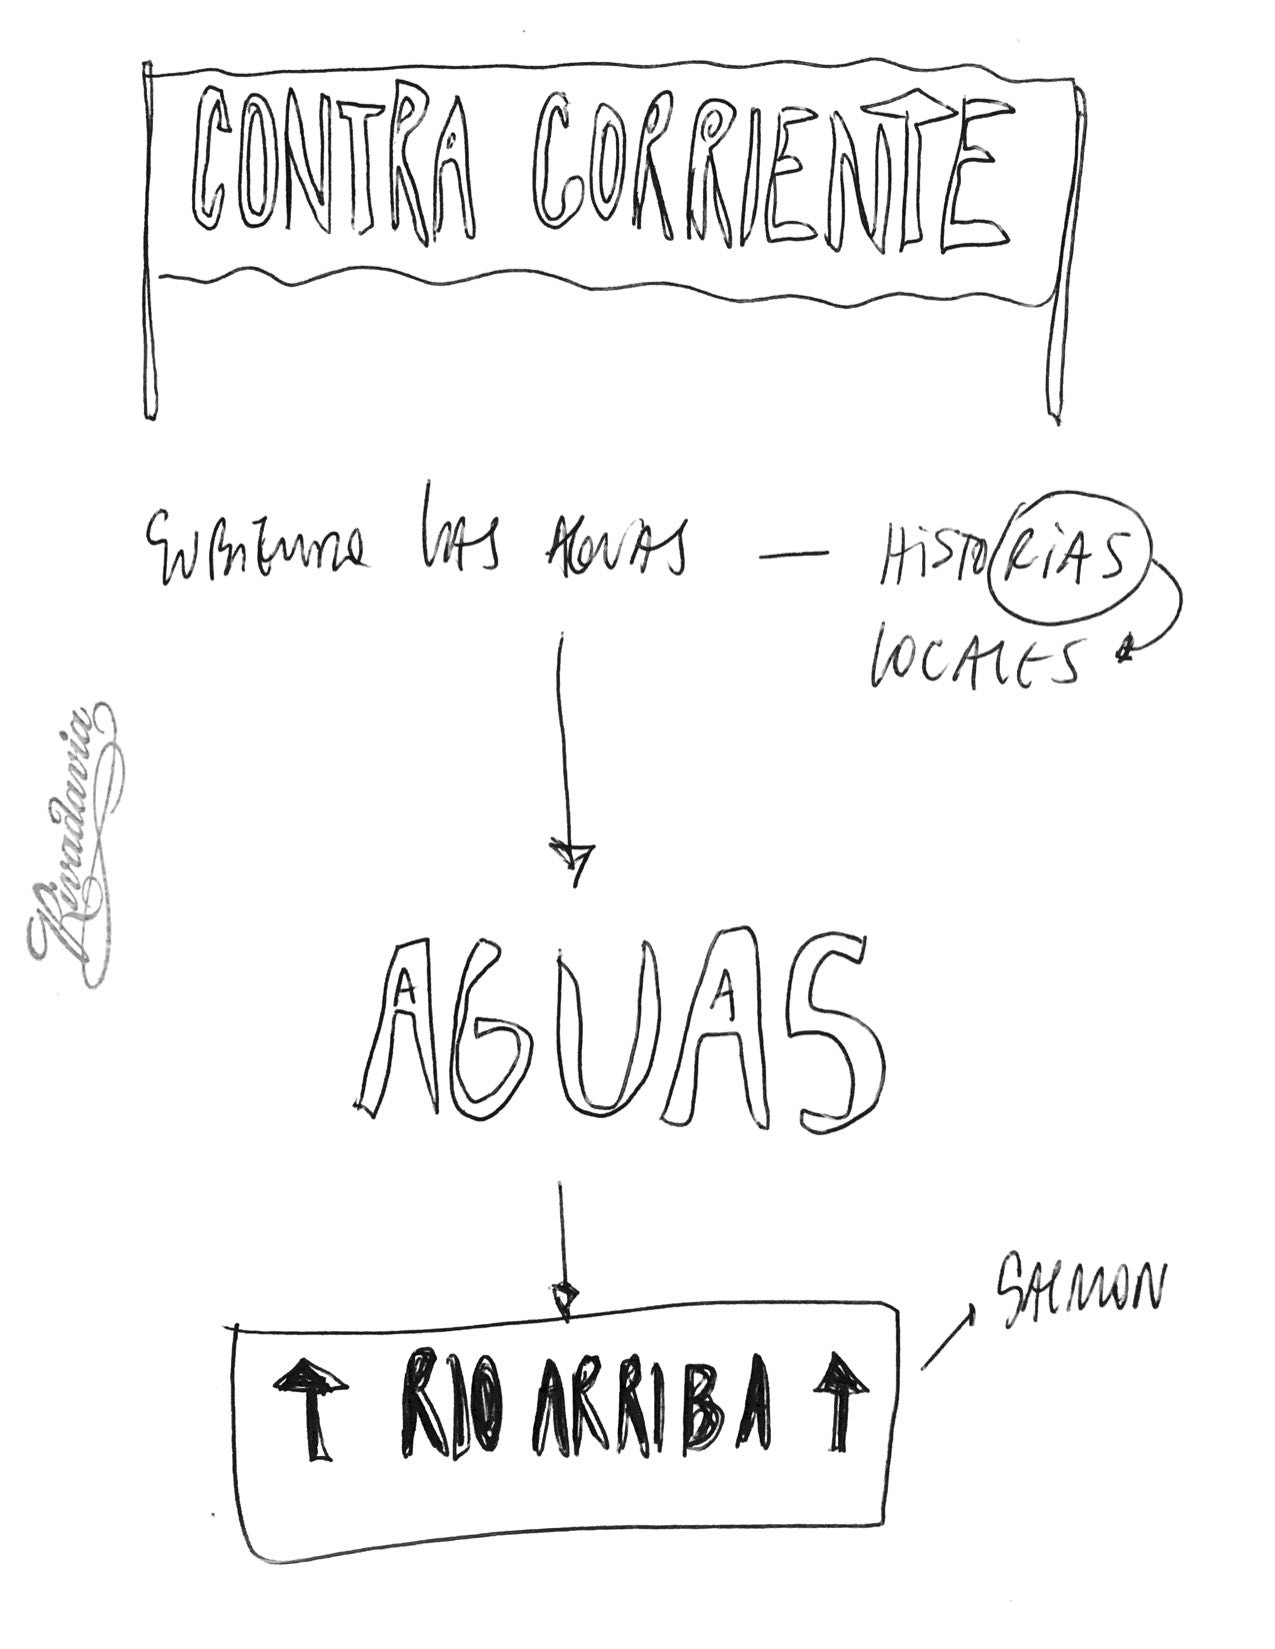 CONTRA CORRIENTE
SUBIENDO LAS AGUAS — HISTORIAS
LOCALES
Rivadavia
AGUAS
SALMON
↑ RIO ARRIBA ↑